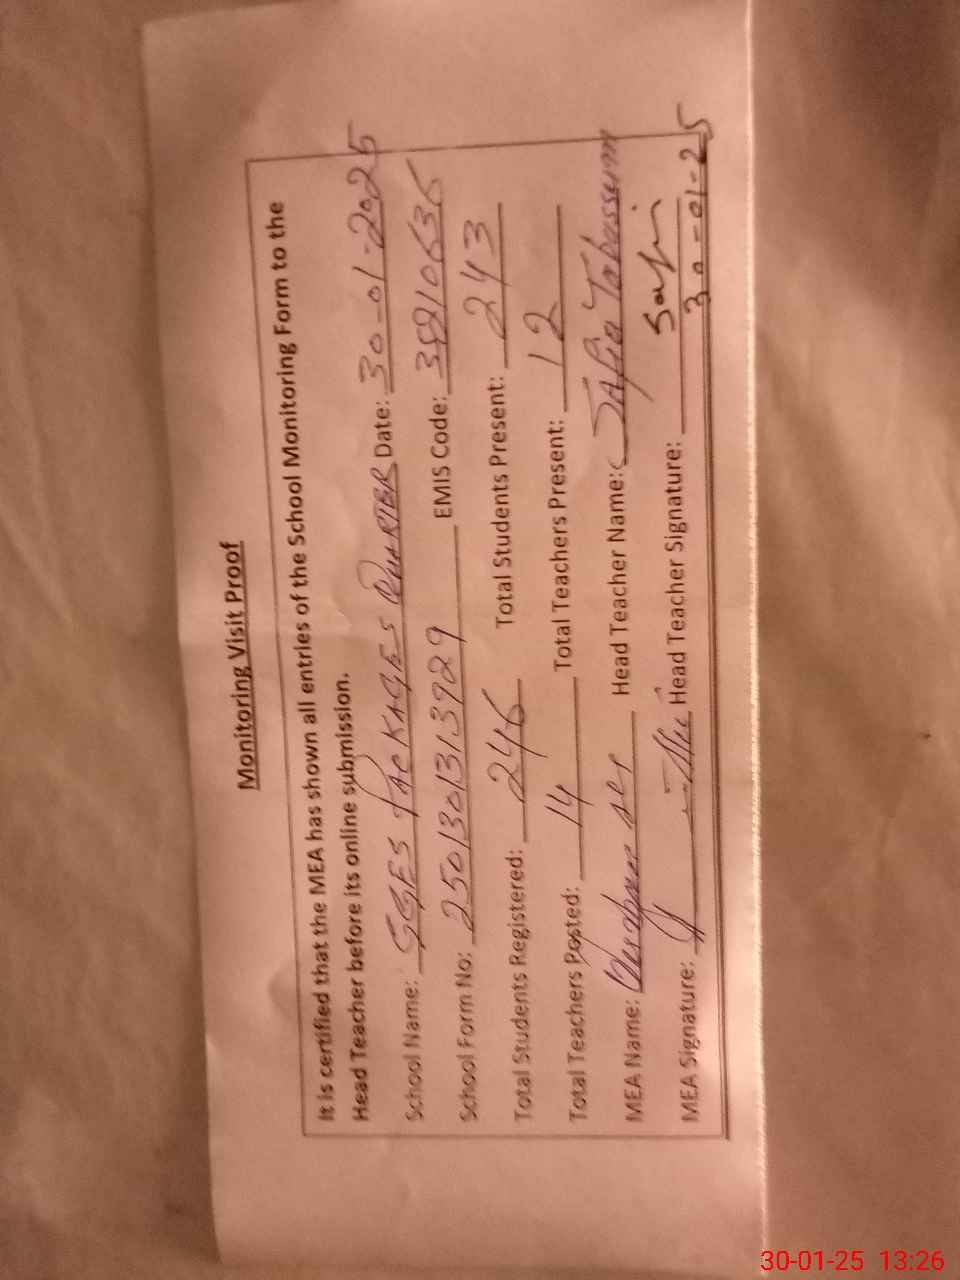 Monitoring Visit Proof
It is certified that the MEA has shown all entries of the School Monitoring Form to the
Head Teacher before its online submission.
School Name: GGES PACKAGES QUARTER Date: 30-01-2025
School Form No: 2501301313929 EMIS Code: 35210635
Total Students Registered: 246 Total Students Present: 243
Total Teachers Posted: 14 Total Teachers Present: 12
MEA Name: Head Teacher Name: Safia Tabassum
MEA Signature: Head Teacher Signature: Safi
30-01-25
30-01-25 13:26